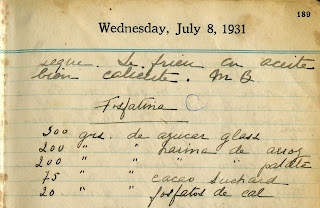 189
Wednesday, July 8, 1931
seque. Se frien en aceite
bien caliente. M B
Fosfatina C
300 grs. de azucar glass
200 " " harina de arroz
200 " " " " patata
75 " cacao Suchard
20 " fosfatos de cal